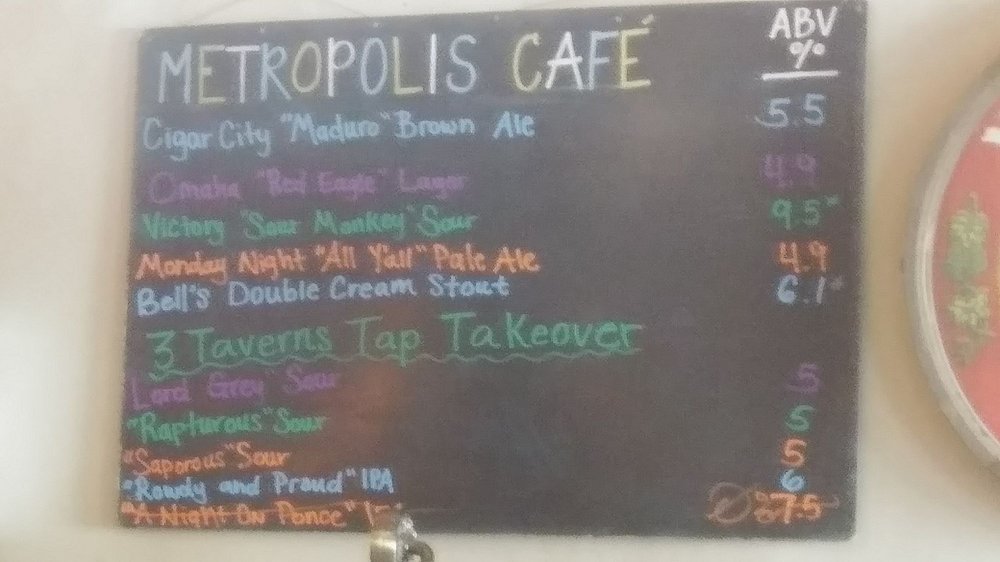 METROPOLIS CAFÉ
ABV
%
Cigar City "Maduro" Brown Ale 5.5
Omaha "Bod Eagle" Lager 4.9
Victory "Sour Monkey" Sour 9.5*
Monday Night "All Y'all" Pale Ale 4.9
Bell's Double Cream Stout 6.1*
3 Taverns Tap Takeover
Lord Grey" Sour 5
"Rapturous" Sour 5
"Saporous" Sour 5
"Rowdy and Proud" IPA 6
"A Night On Ponce" 7.5